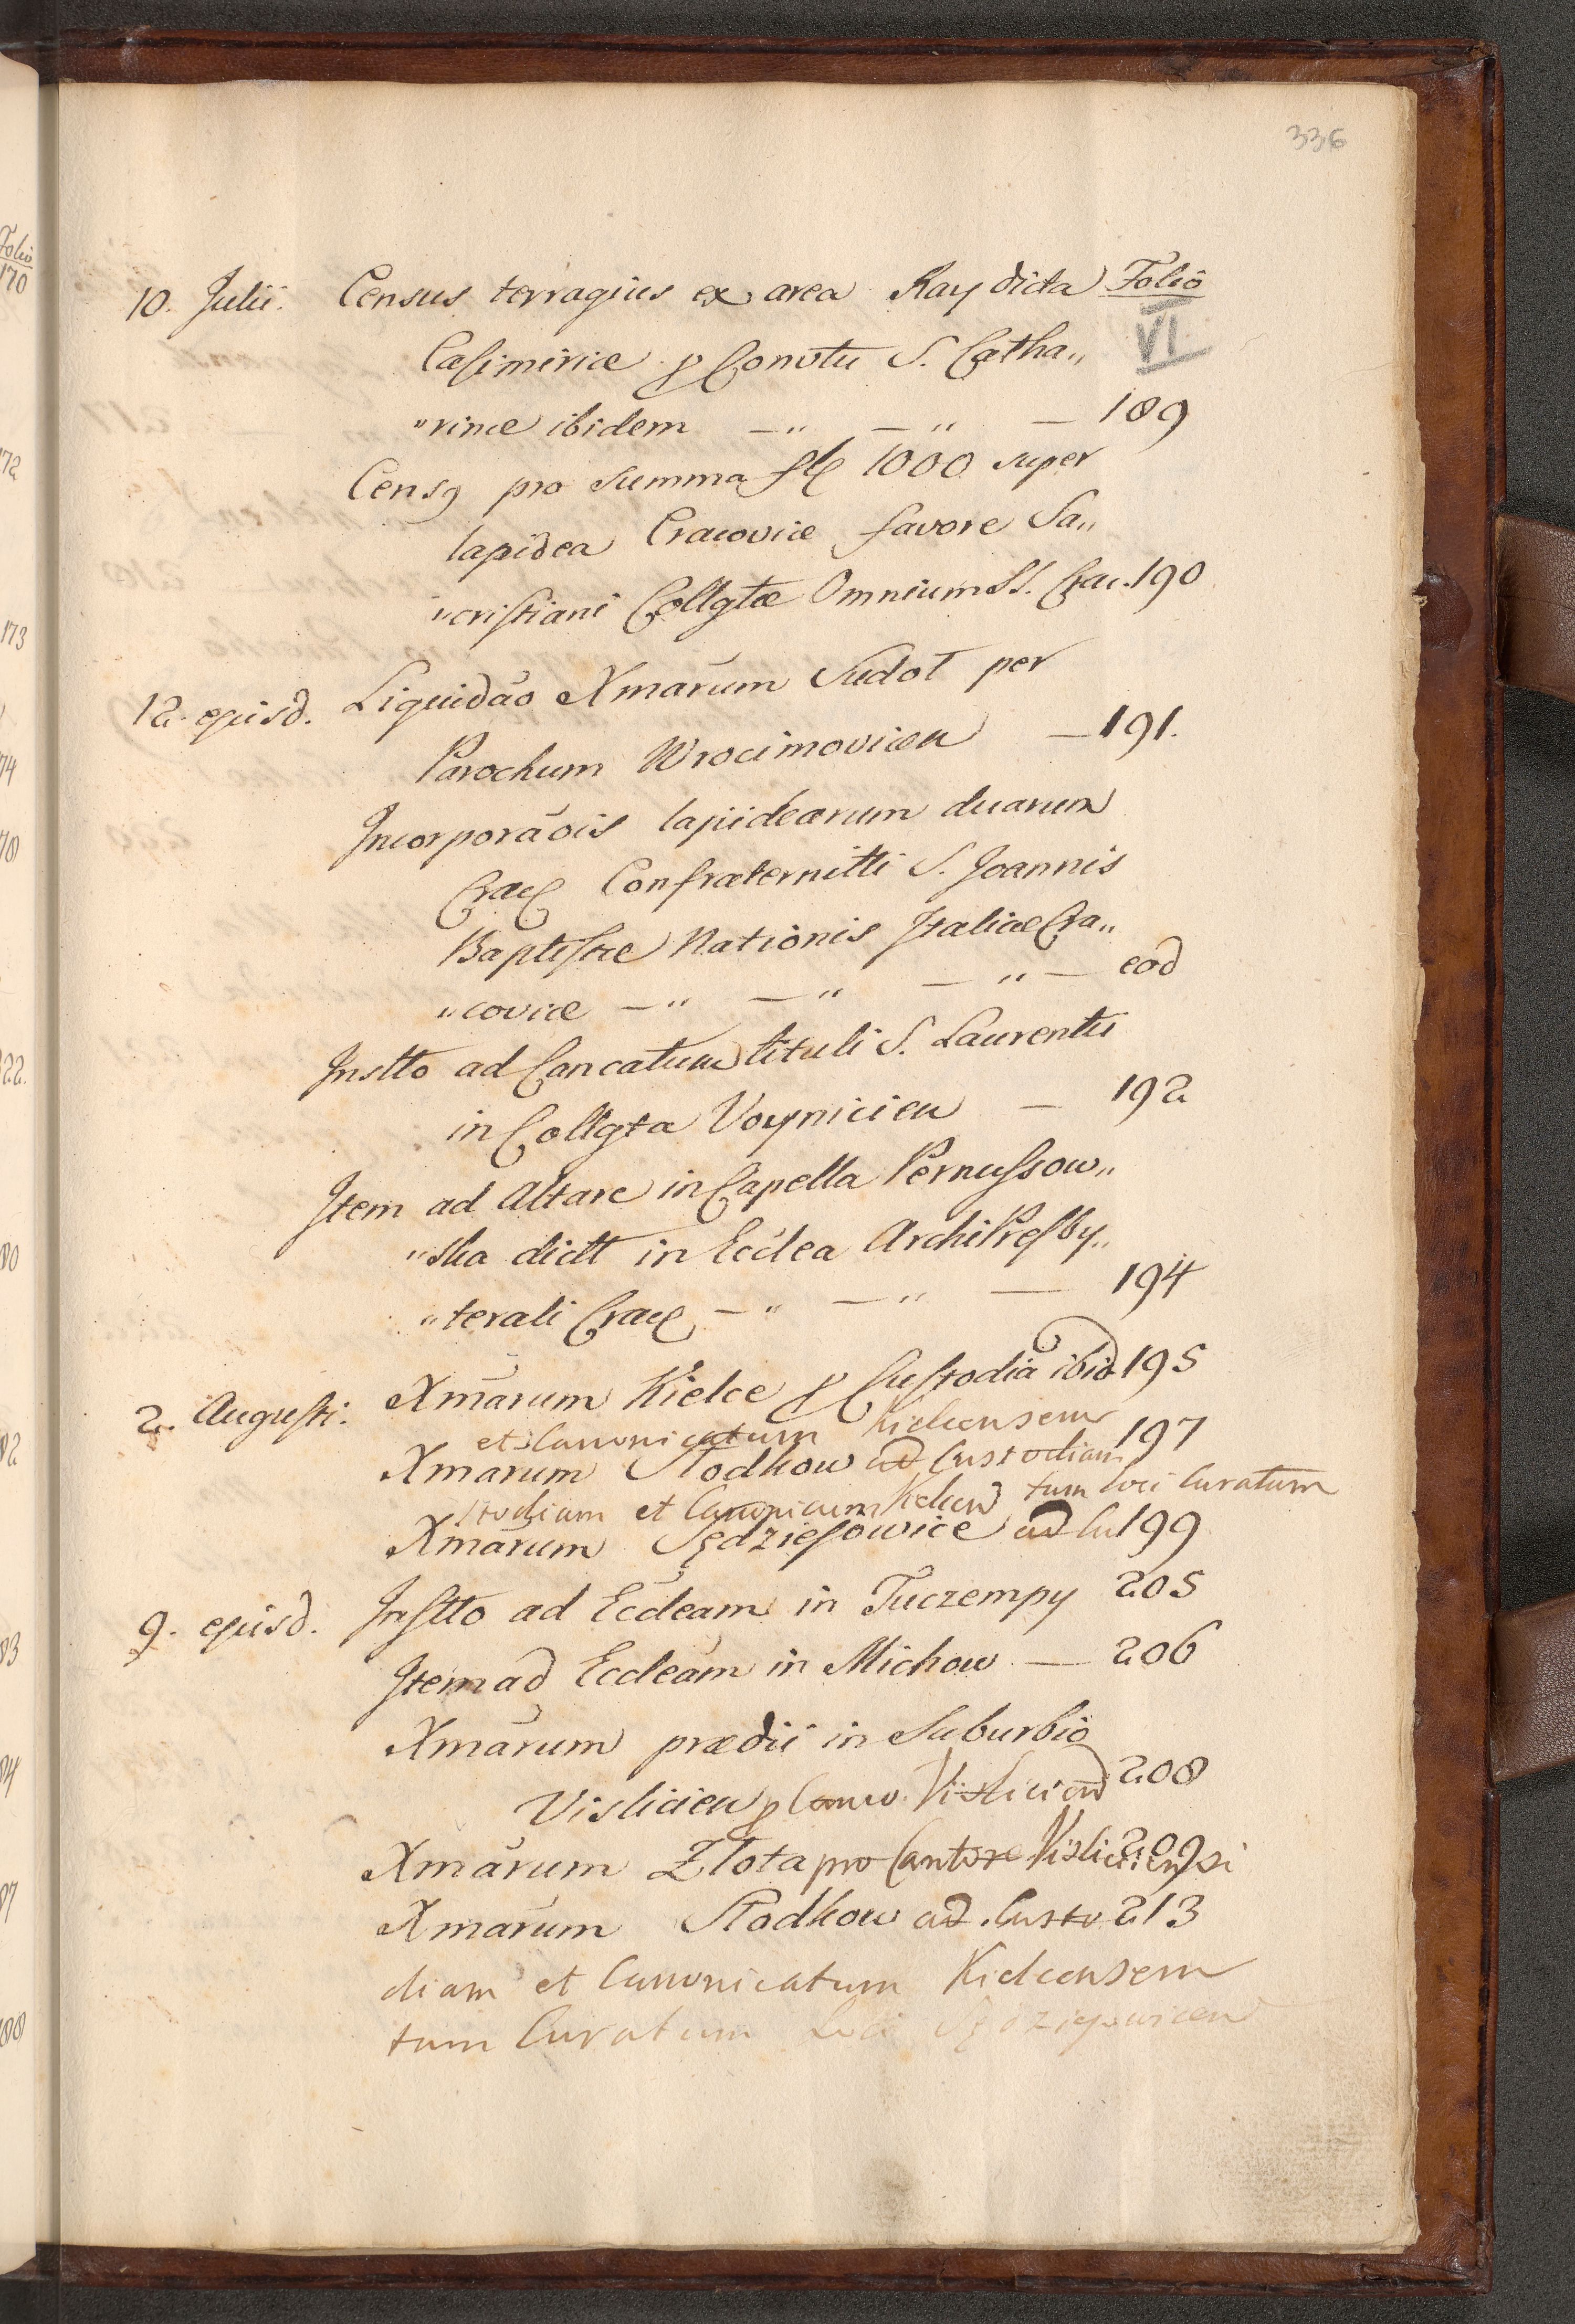 336
Folio
10. Julii. Census terragius ex area Ray dicta
VI
Casimiriæ p Convtu S. Catha„
„rinæ ibidem —„ —„ — 189
Censg pro summa fl 1000 super
lapidea Cracoviæ favore Sa„
„cristiani Collgtæ Omnium SS. Crac. 190
12. ejusd. Liquidão Xmarum Sudoł per
Parochum Wrocimovicen — 191.
Incorporãois lapidearum duarum
Crac Confraternitti S. Joannis
Baptistæ Nationis Italicæ Cra„
„coviæ —„ —„ —„— eod
Instto ad Cancatum tituli S. Laurentii
in Collgta Voynicien — 192
Item ad Altare in Capella Pernussow„
„ska dictt in Ecclea ArchiPresby„
„terali Crac —„ —„ — 194
2. Augusti. Xmarum Kielce p Custodia ibid 195
et Canonicatum Kielcensem
Xmarum Słodkow ad Custodiam 197
stodiam et Canonicum Kielcen tum loci Curatum
Xmarum Sędziejowice ad Cu 199
9. ejusd. Instto ad Eccleam in Tuczempy 205
Item ad Eccleam in Michow — 206
Xmarum prædii in Suburbio
Vislicien p Canco. Vislicien 208
Xmarum Złota pro Cantore Visliciensi 209
Xmarum Słodkow ad Custo 213
diam et Canonicatum Kielcensem
tum Curatum Loci Sędziejowicen